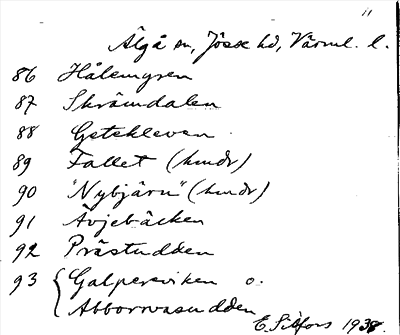 11
Älgå sn, Jösse hd, Värml. l.
86 Hålemyren
87 Skrämdalen
88 Getekleven
89 Fallet (hmdr)
90 "Nybjärn" (hmdr)
91 Avjebäcken
92 Prästudden
93 { Galpereviken o.
Abborrvasudden
E. Silfors 1938.